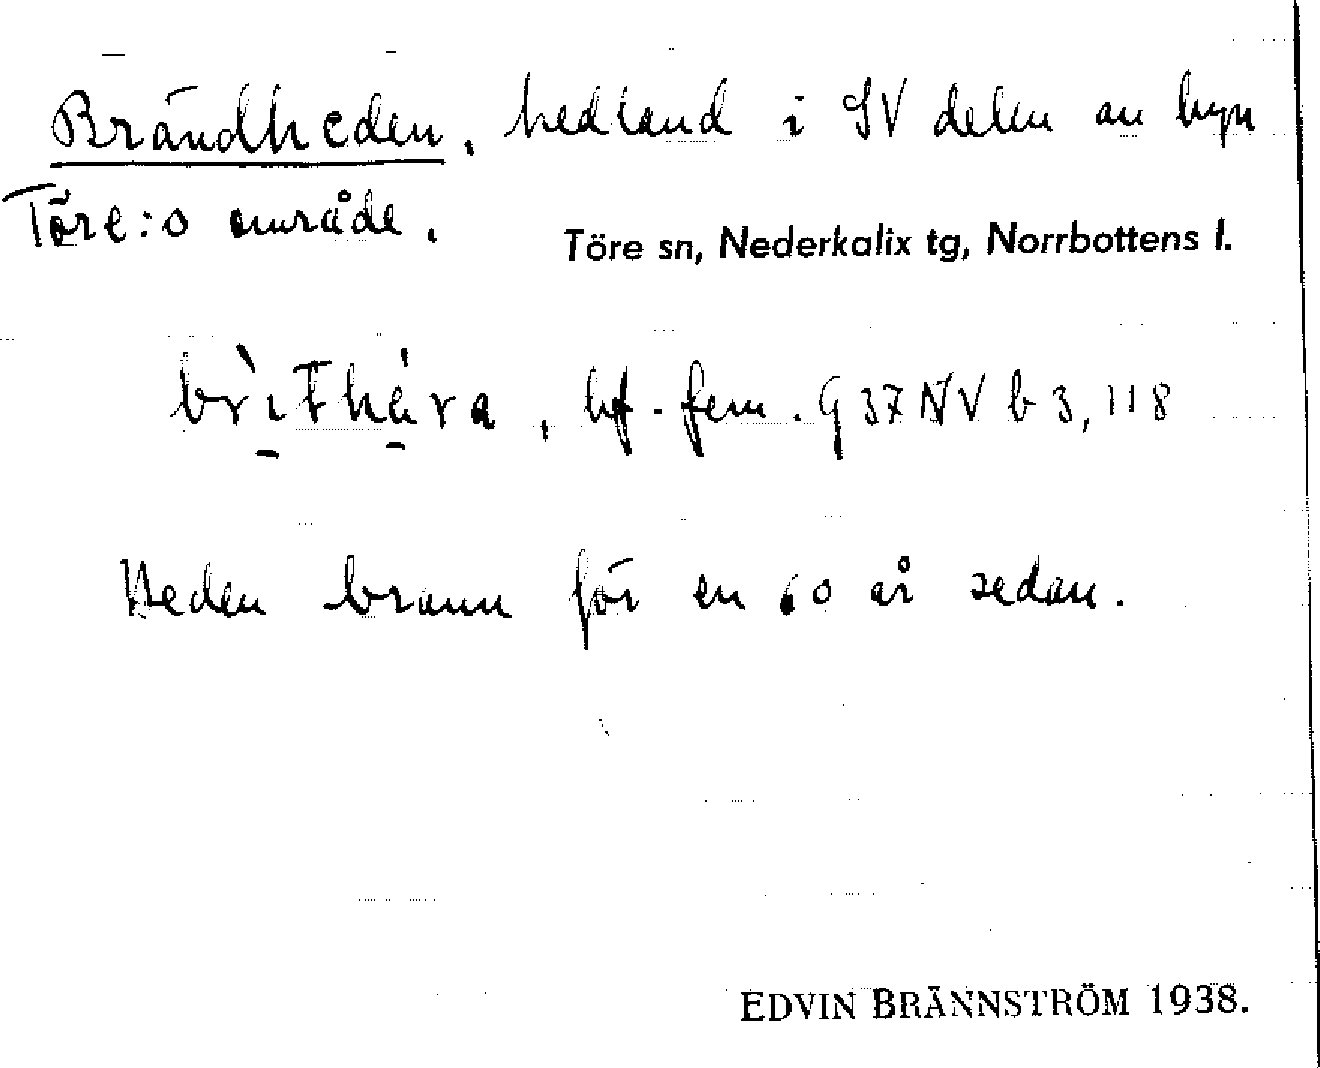 Brändheden, hedland i SV delen av byn
Töre:s område.
Töre sn, Nederkalix tg, Norrbottens l.
brìthára, bf. fem. G 37 NV b 3, 118
Heden brann för en 60 år sedan.
EDVIN BRÄNNSTRÖM 1938.